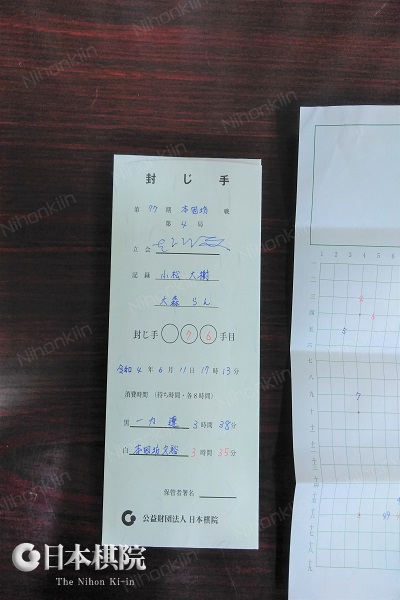 封じ手
第 77 期 本因坊 戦
第 4 局
立会
記録 小松 大樹
大森 らん
封じ手 7 6 手目
令和 4 年 6 月 11 日 17 時 13 分
消費時間 (持ち時間・各8時間)
黒 一力 遼 3 時間 38 分
白 本因坊文裕 3 時間 35 分
保管者署名
公益財団法人 日本棋院
日本棋院
The Nihon Ki-in
Nihonkiin